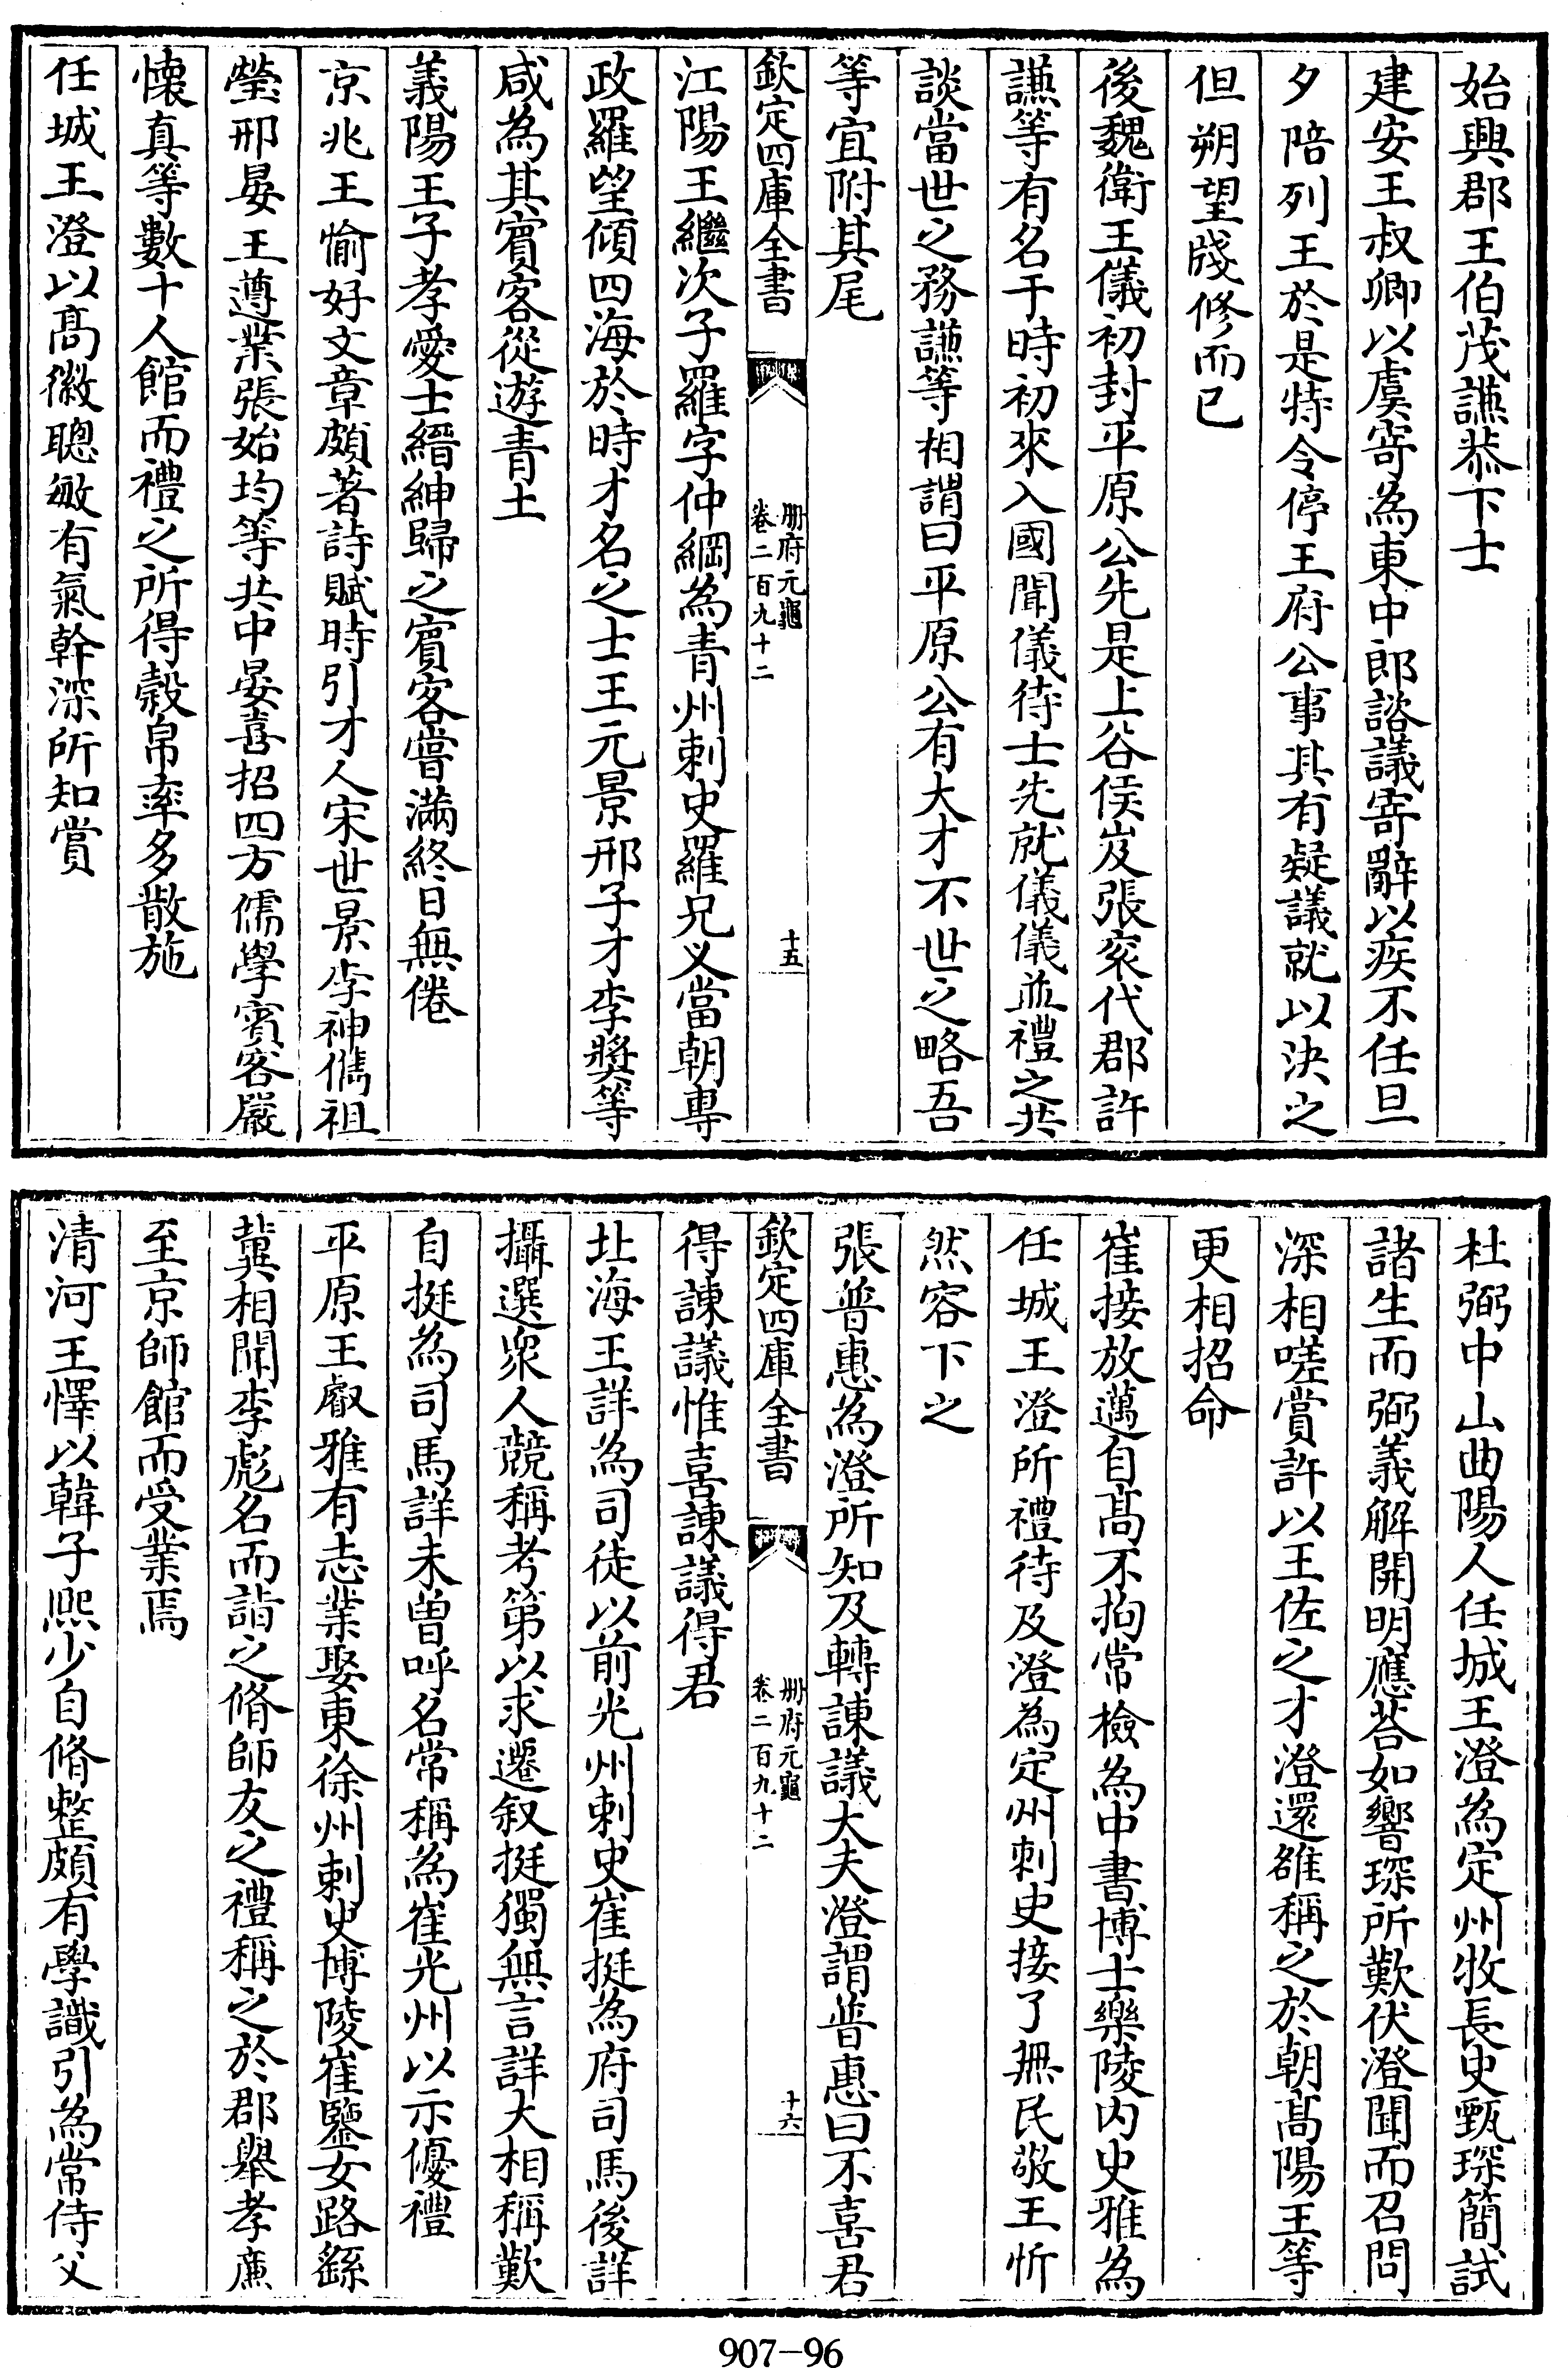 始興郡王伯茂謙恭下士
建安王叔卿以虞寄為東中郎諮議寄辭以疾不任旦
夕陪列王於是特令停王府公事其有疑議就以決之
但朔望牋修而已
後魏衛王儀初封平原公先是上谷侯岌張衮代郡許
謙等有名于時初來入國聞儀待士先就儀儀並禮之共
談當世之務謙等相謂曰平原公有大才不世之略吾
等宜附其尾
欽定四庫全書
册府元龜
卷二百九十二
十五
江陽王繼次子羅字仲綱為青州刺史羅兄义當朝專
政羅望傾四海於時才名之士王元景邢子才李奬等
咸為其賓客從遊青土
義陽王子孝愛士縉紳歸之賓客嘗滿終日無倦
京兆王愉好文章頗著詩賦時引才人宋世景李神儁祖
瑩邢晏王遵業張始均等共中晏喜招四方儒學賓客嚴
懐真等數十人館而禮之所得榖帛率多散施
任城王澄以髙徽聰敏有氣幹深所知賞
杜弼中山曲陽人任城王澄為定州牧長史甄琛簡試
諸生而弼義解開明應荅如響琛所歎伏澄聞而召問
深相嗟賞許以王佐之才澄還雒稱之於朝髙陽王等
更相招命
崔接放邁自髙不拘常檢為中書博士樂陵内史雅為
任城王澄所禮待及澄為定州刺史接了無民敬王忻
然容下之
張普惠為澄所知及轉諫議大夫澄謂普惠曰不喜君
得諫議惟喜諫議得君
欽定四庫全書
册府元龜
卷二百九十二
十六
北海王詳為司徒以前光州刺史崔挺為府司馬後詳
攝選衆人競稱考第以求遷叙挺獨無言詳大相稱歎
自挺為司馬詳未曽呼名常稱為崔光州以示優禮
平原王叡雅有志業娶東徐州刺史博陵崔鑒女路繇
冀相聞李彪名而詣之脩師友之禮稱之於郡舉孝廉
至京師館而受業焉
清河王懌以韓子熙少自脩整頗有學識引為常侍父
907-96